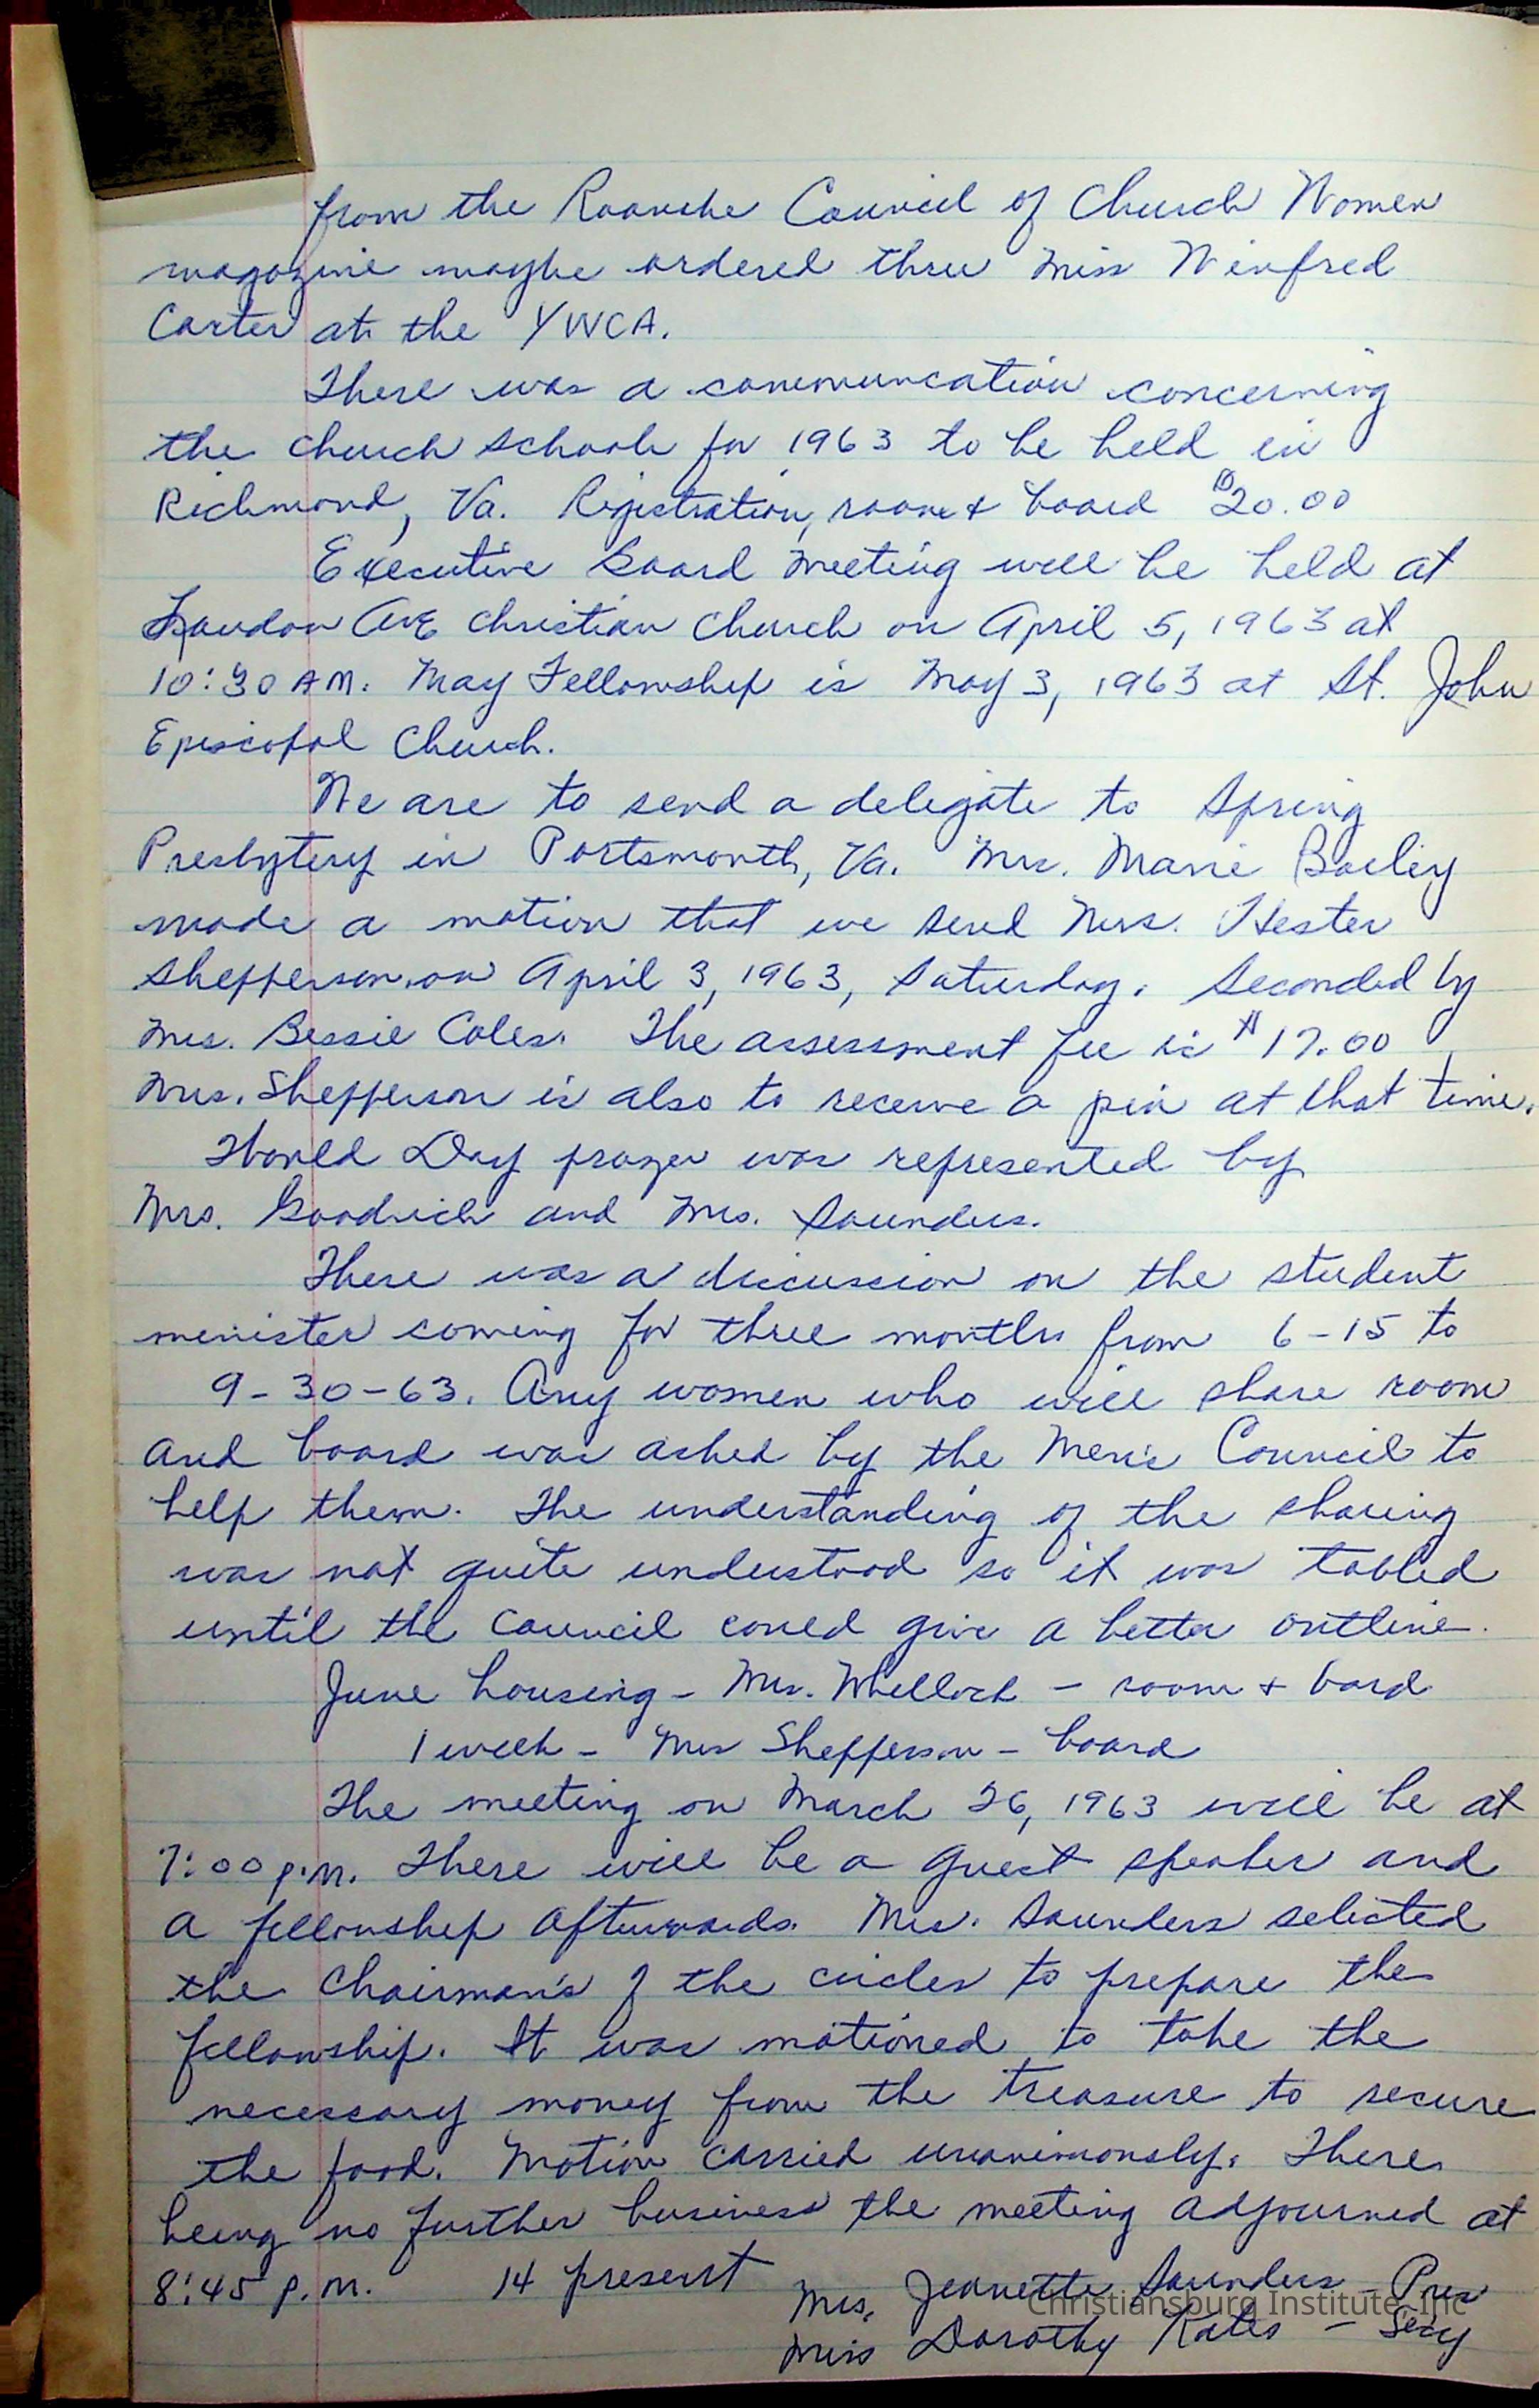 from the Roanoke Council of Church Women
magazine maybe ordered thru Miss Winfred
Carter at the YWCA.
There was a communcation concerning
the church schools for 1963 to be held in
Richmond, Va. Registration, room & board $20.00
Executive Board meeting will be held at
Loudon Ave Christian Church on April 5, 1963 at
10:30 AM. May Fellowship is May 3, 1963 at St. John
Episcopal Church.
We are to send a delegate to Spring
Presbytery in Portsmouth, Va. Mrs. Marie Bailey
made a motion that we send Mrs. Hester
Shepperson on April 3, 1963, Saturday. Seconded by
Mrs. Bessie Coles. The assessment fee is $17.00
Mrs. Shepperson is also to receive a pin at that time.
World Day prayer was represented by
Mrs. Goodrich and Mrs. Saunders.
There was a discussion on the student
minister coming for three months from 6-15 to
9-30-63. Any women who will share room
and board was asked by the Men's Council to
help them. The understanding of the sharing
was not quite understood so it was tabled
until the Council could give a better outline.
June housing - Mrs. - room & board
1 week - Mrs Shepperson - board
The meeting on March 26, 1963 will be at
7:00 p.m. There will be a guest speaker and
a fellowship afterwards. Mrs. Saunders selected
the Chairman's of the circles to prepare the
fellowship. It was motioned to take the
necessary money from the treasure to secure
the food. Motion carried unanimously. There
being no further business the meeting adjourned at
8:45 p.m. 14 present
Mrs. Jeanette Saunders - Pres
Miss Dorothy Kates - Secy
Christiansburg Institute, Inc